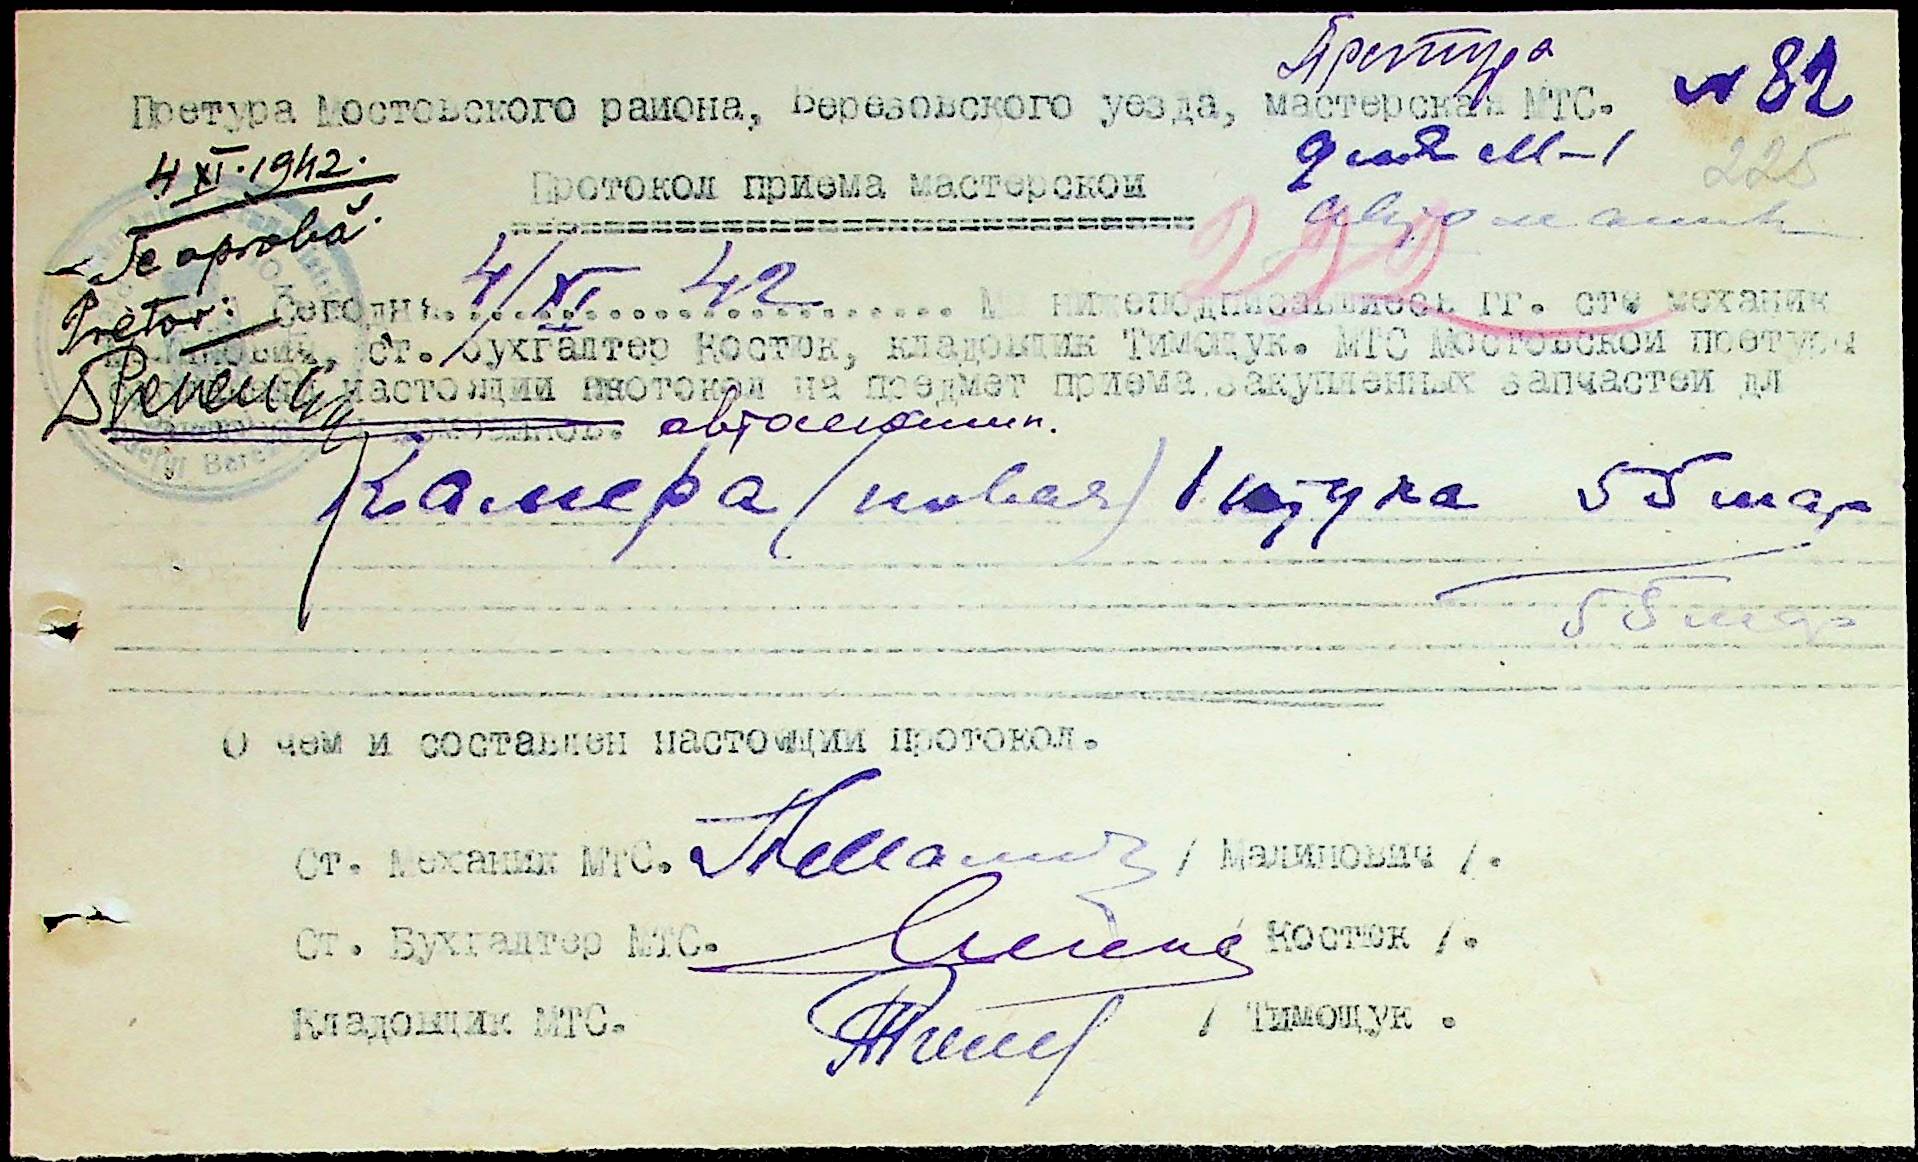 Претура
Претура Мостовского района, Березовского уезда, мастерская МТС. № 82
для М-1
225
4 XI. 1942.
Протокол приема мастерской
автомашин
Se aprobă.
222
Pretor:
Сегодня 4/XI 42 Мы нижеподписавшиеся гг. ст. механик
Малинович, ст. бухгалтер Костюк, кладовщик Тимощук. МТС Мостовской претуры
настоящий протокол на предмет приема закупленных запчастей для
автомашин.
Камера (новая) 1 штука 55 мар
55 мар
О чем и составлен настоящий протокол.
Ст. механик МТС. / Малинович /.
Ст. Бухгалтер МТС. / Костюк /.
Кладовщик МТС. / Тимощук .